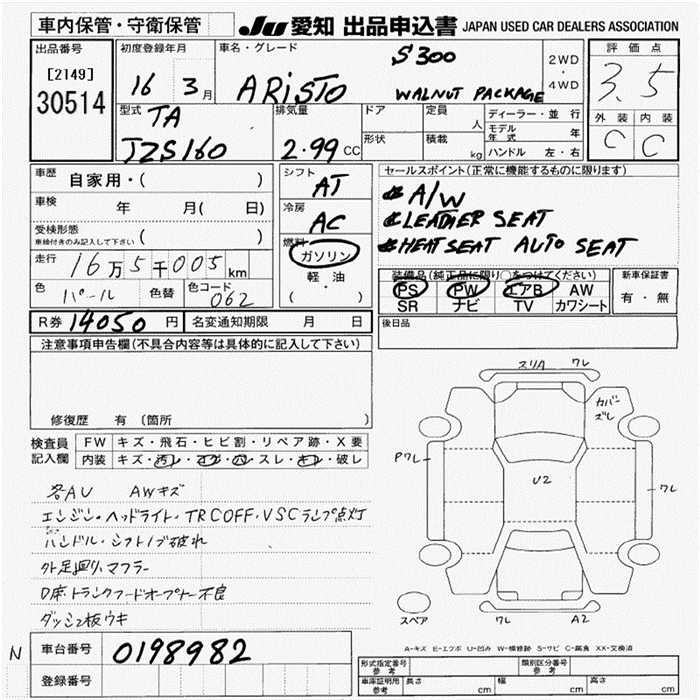 車内保管・守衛保管
JU 愛知 出品申込書 JAPAN USED CAR DEALERS ASSOCIATION
出品番号
[2149]
30514
初度登録年月
16 3月
車名・グレード
ARiSTO
S300
WALNUT PACKAGE
2WD
・
4WD
評価点
3.5
外装 内装
C C
型式
TA
JZS160
排気量
2.99 CC
ドア
形状
定員
人
積載
kg
ディーラー・並行
モデル年式 年
ハンドル 左・右
車歴
自家用・( )
車検
年 月( 日)
受検形態
車検付きのみ記入して下さい ( )
走行
16万5千005km
色
パール
色替
色コード
062
シフト
AT
冷房
AC
燃料
ガソリン
軽・油
( ・ )
セールスポイント(正常に機能するものに限ります)
A/W
LEATHER SEAT
HEAT SEAT AUTO SEAT
装備品(純正品に限り○をつけてください)
PS PW エアB AW
SR ナビ TV カワシート
新車保証書
有・無
R券 14050 円
名変通知期限 月 日
後日品
注意事項申告欄(不具合内容等は具体的に記入して下さい)
修復歴 有 〔箇所 〕
検査員記入欄
FW キズ・飛石・ヒビ割・リペア跡・X要
内装 キズ・汚レ・コゲ・穴・スレ・キレ・破レ
各AU AWキズ
エンジン・ヘッドライト・TRCOFF・VSCランプ点灯
ハンドル・シフトノブ破れ
外足廻り、マフラー
D席・トランクフードオープナー不良
ダッシュ板ウキ
スリA ワレ
カバーズレ
Pワレ
U2
ワレ
スペア
ワレ A2
A-キズ E-エクボ U-凹み W-補修跡 S-サビ C-腐食 XX-交換済
N
車台番号 0198982
登録番号
形式指定番号
参考
類別区分番号
参考
車庫証明用
参考
長さ cm 幅 cm 高さ cm